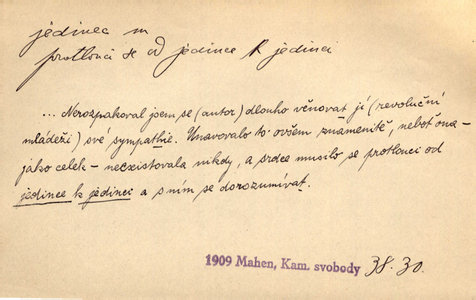 jedinec m
protlouci se od jedince k jedinci
... Nerozpakoval jsem se (autor) dlouho věnovat jí (revoluční
mládeži) své sympathie. Unavovalo to ovšem znamenitě, neboť ona -
jako celek - neexistovala nikdy, a srdce musilo se protlouci od
jedince k jedinci a s ním se dorozumívat.
1909 Mahen, Kam. svobody 38. 30.